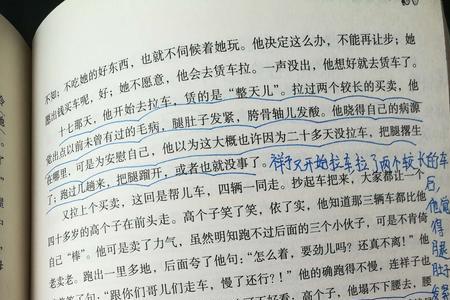 不知;不吃她的好东西,也就不伺候着她玩。他决定这么办,不能再让步;她
愿出钱买车呢,好;她不愿意,他会去赁车拉。一声没出,他想好就去赁了。
十七那天,他开始去拉车,赁的是“整天儿”。拉过两个较长的买卖,他
觉出点以前未曾有过的毛病,腿肚子发紧,胯骨轴儿发酸。他晓得自己的病源
在哪里,可是为安慰自己,他以为这大概也许因为二十多天没拉车,把腿撂生
了;跑过几趟来,把腿蹓开,或者也就没事了。祥子又开始拉车,拉了两个较长的车
后,他觉得腿肚子发紧
又拉上个买卖,这回是帮儿车,四辆一同走。抄起车把来,大家都让一个
四十多岁的高个子在前头走。高个子笑了笑,依了实,他知道那三辆车都比他
自己“棒”。他可是卖了力气,虽然明知跑不过后面的三个小伙子,可是不肯倚
老卖老。跑出一里多地,后面夸了他句:“怎么着,要劲儿吗?还真不离!”他
喘着答了句:“跟你们哥儿们走车,慢了还行?!”他的确跑得不慢,连祥子也
高个子,他塌不下腰去,腰